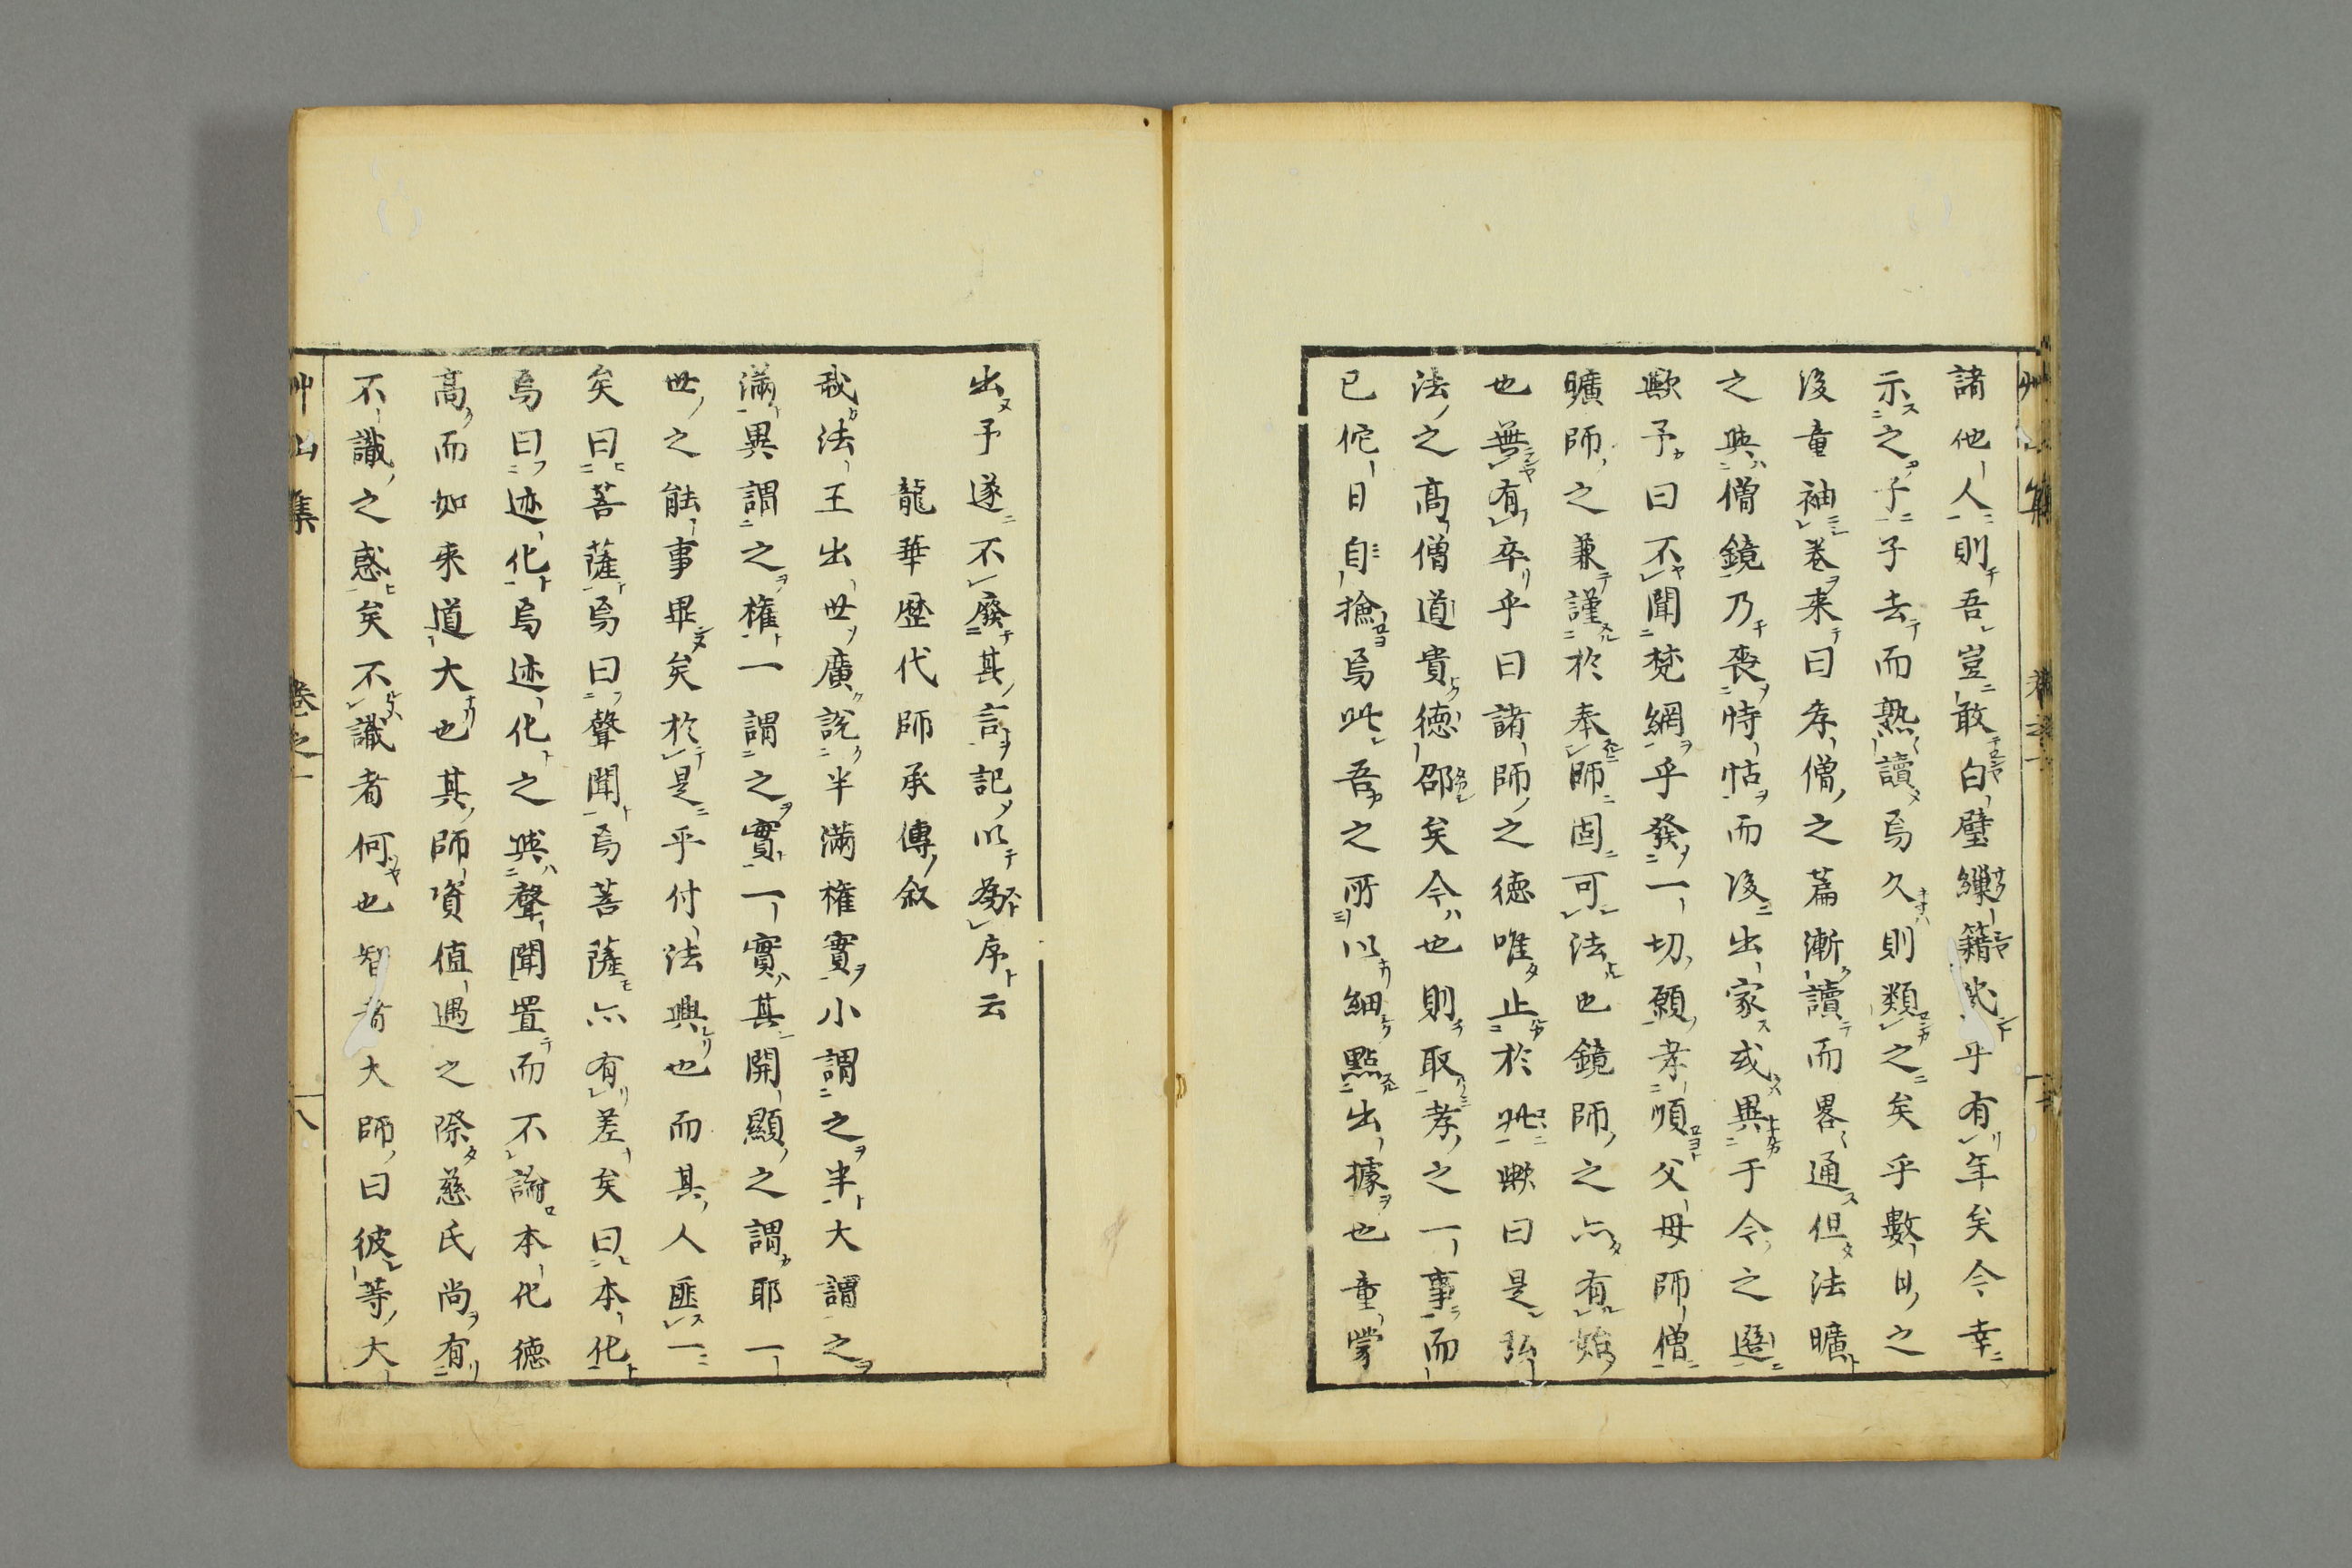 諸他人則吾豈敢白璧繅籍哉乎有年矣今幸
示之子子去而熟讀焉久則類之矣乎數日之
後童袖卷来曰孝僧之篇漸讀而畧通但法曠
之與僧鏡乃喪恃怙而後出家或異于今之選
歟予曰不聞梵網乎發一切願孝順父母師僧
曠師之兼謹於奉師固可法也鏡師之亦有始
也無有卒乎曰諸師之徳唯止於玭歟曰是弘
法之高僧道貴徳邵矣今也則取孝之一事而
已佗日自撿焉此吾之所以細點出據也童蒙
出予遂不廢其言記以為序云
龍華歴代師承傳叙
我法王出世廣説半滿權實小謂之半大謂之
滿異謂之權一謂之實一實其開顯之謂耶一
世之能事畢矣於是乎付法興也而其人匪一
矣曰菩薩焉曰聲聞焉菩薩亦有差矣曰本化
焉曰迹化焉迹化之與聲聞置而不論本化徳
高而如来道大也其師資値遇之際慈氏尚有
不識之惑矣不識者何也智者大師曰彼等大
艸山集 卷之一 八